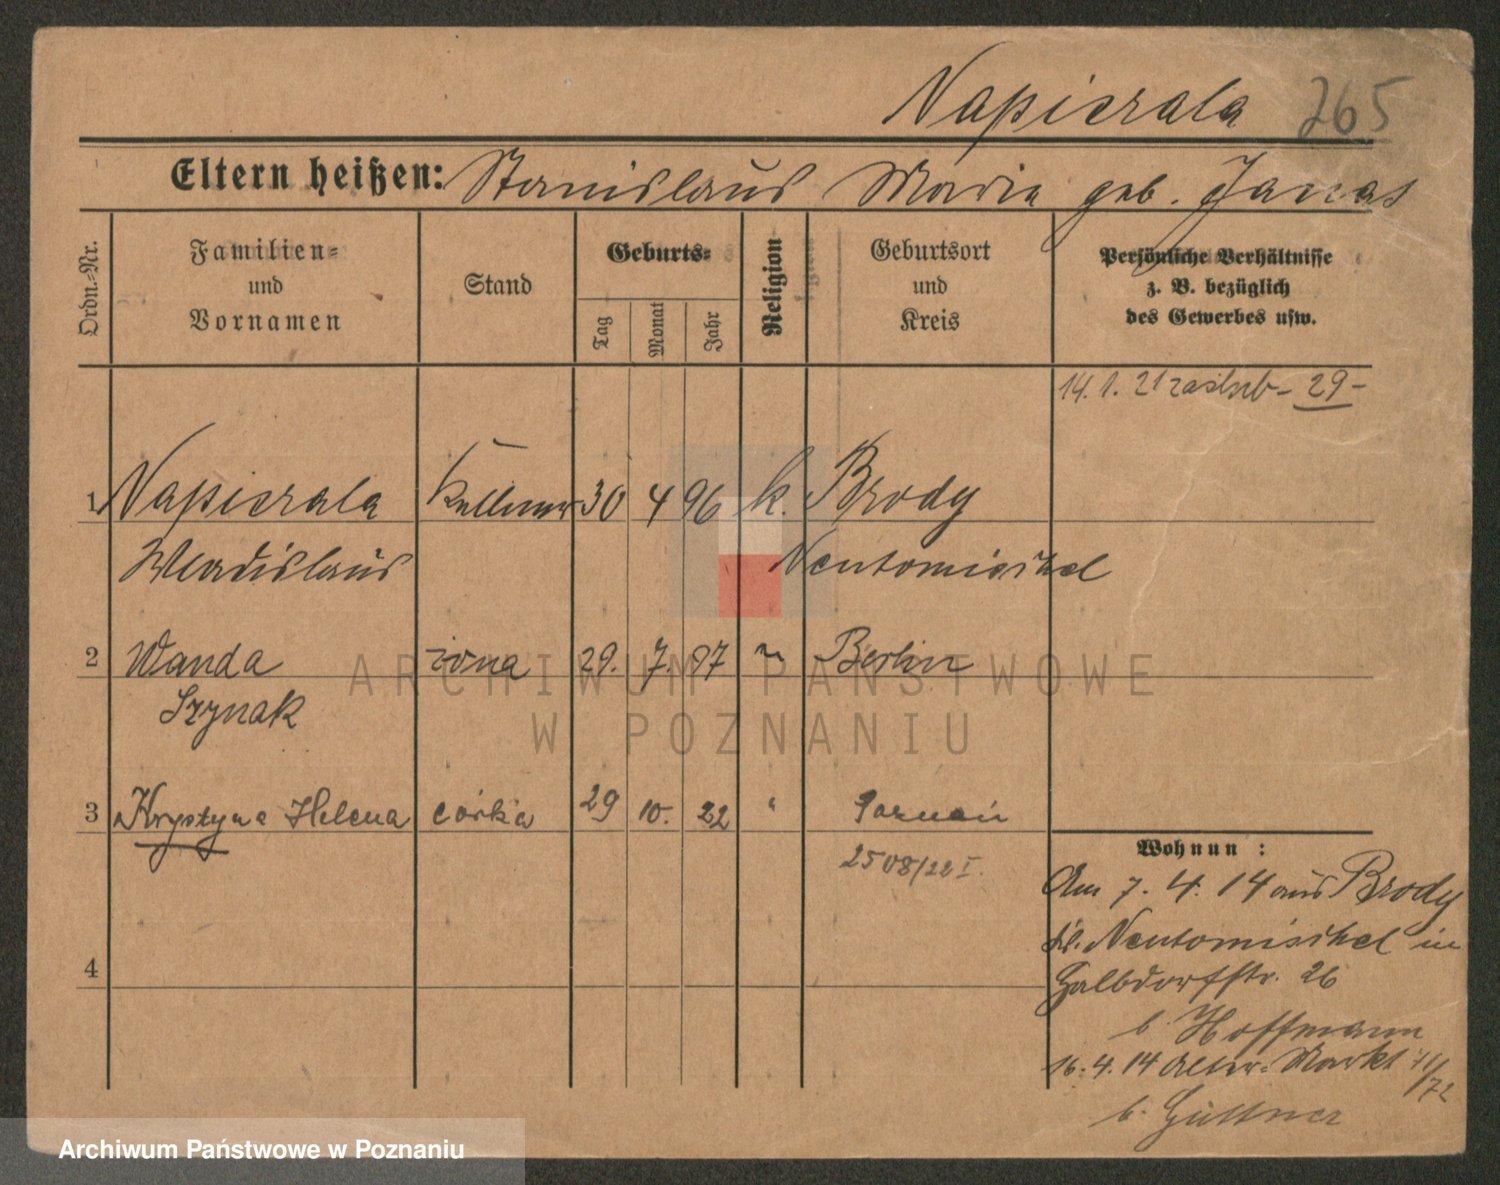 Napierala 265
Eltern heißen: Stanislaus Marie geb. Janas
Ordn.-Nr.
Familien-
und
Vornamen
Stand
Geburts-
Tag
Monat
Jahr
Religion
Geburtsort
und
Kreis
Persönliche Verhältnisse
z. B. bezüglich
des Gewerbes usw.
14.1.21 zaślub- 29-
1 Napierala Kellner 30 4 96 k. Brody
Wladislaus Neutomischel
2 Wanda żona 29. 7. 97 " Berlin
Szynak
3 Krystyna Helena córka 29 10. 22 " Poznań
2508/22 I.
Wohnun :
Am 7. 4. 14 aus Brody
Kr. Neutomischel in
Halbdorfstr. 26
b. Hoffmann
16.4.14 Alter Markt 71/72
b. Hüttner
4
ARCHIWUM PAŃSTWOWE
W POZNANIU
Archiwum Państwowe w Poznaniu